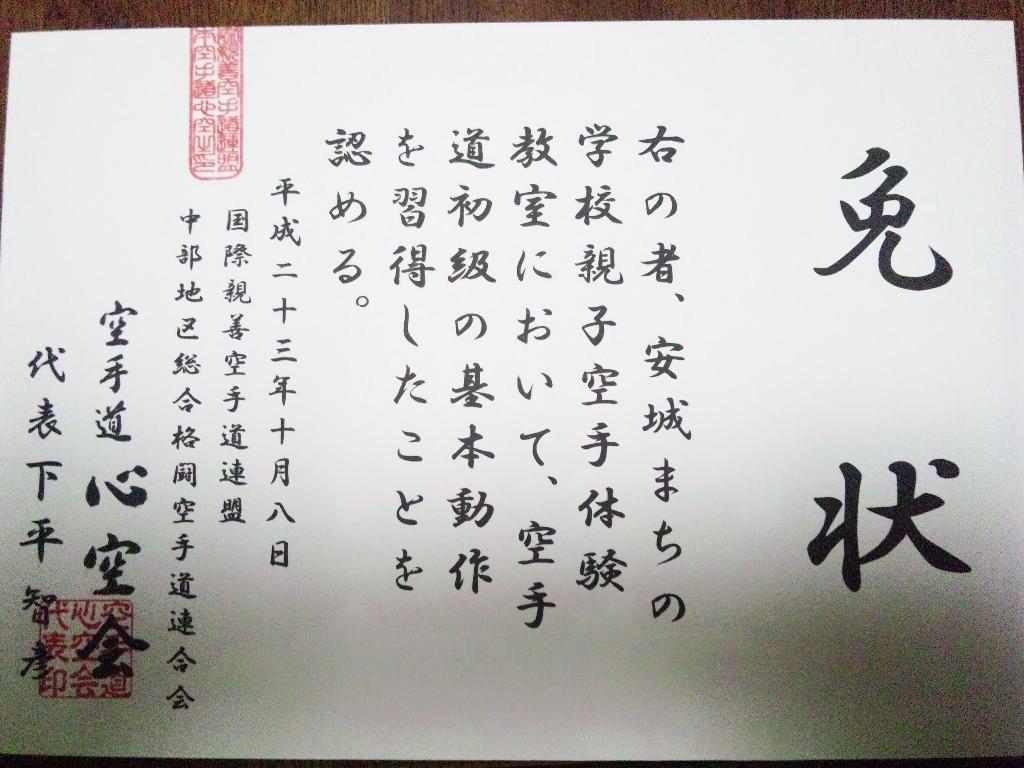 免状
右の者、安城まちの
学校親子空手体験
教室において、空手
道初級の基本動作
を習得したことを
認める。
平成二十三年十月八日
国際親善空手道連盟
中部地区総合格闘空手道連合会
空手道心空会
代表下平智彦
空手道
心空会
代表印